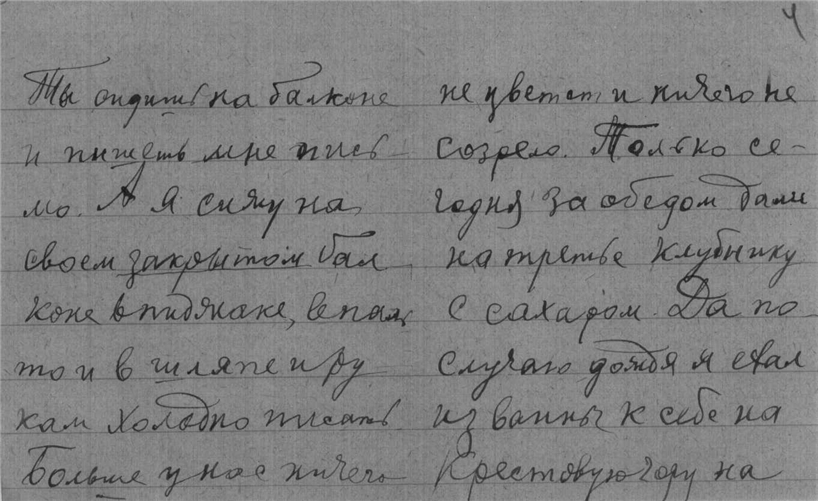 4
Ты сидишь на балконе
и пишешь мне пись
мо. А я сижу на
своем закрытом бал
коне в пиджаке, в паль
то и в шляпе и ру
кам холодно писать
Больше у нас ничего
не цветет и ничего не
созрело. Только се-
годня за обедом дали
на третье клубнику
с сахаром. Да по
случаю дождя я ехал
из ванны к себе на
Крестовую гору на